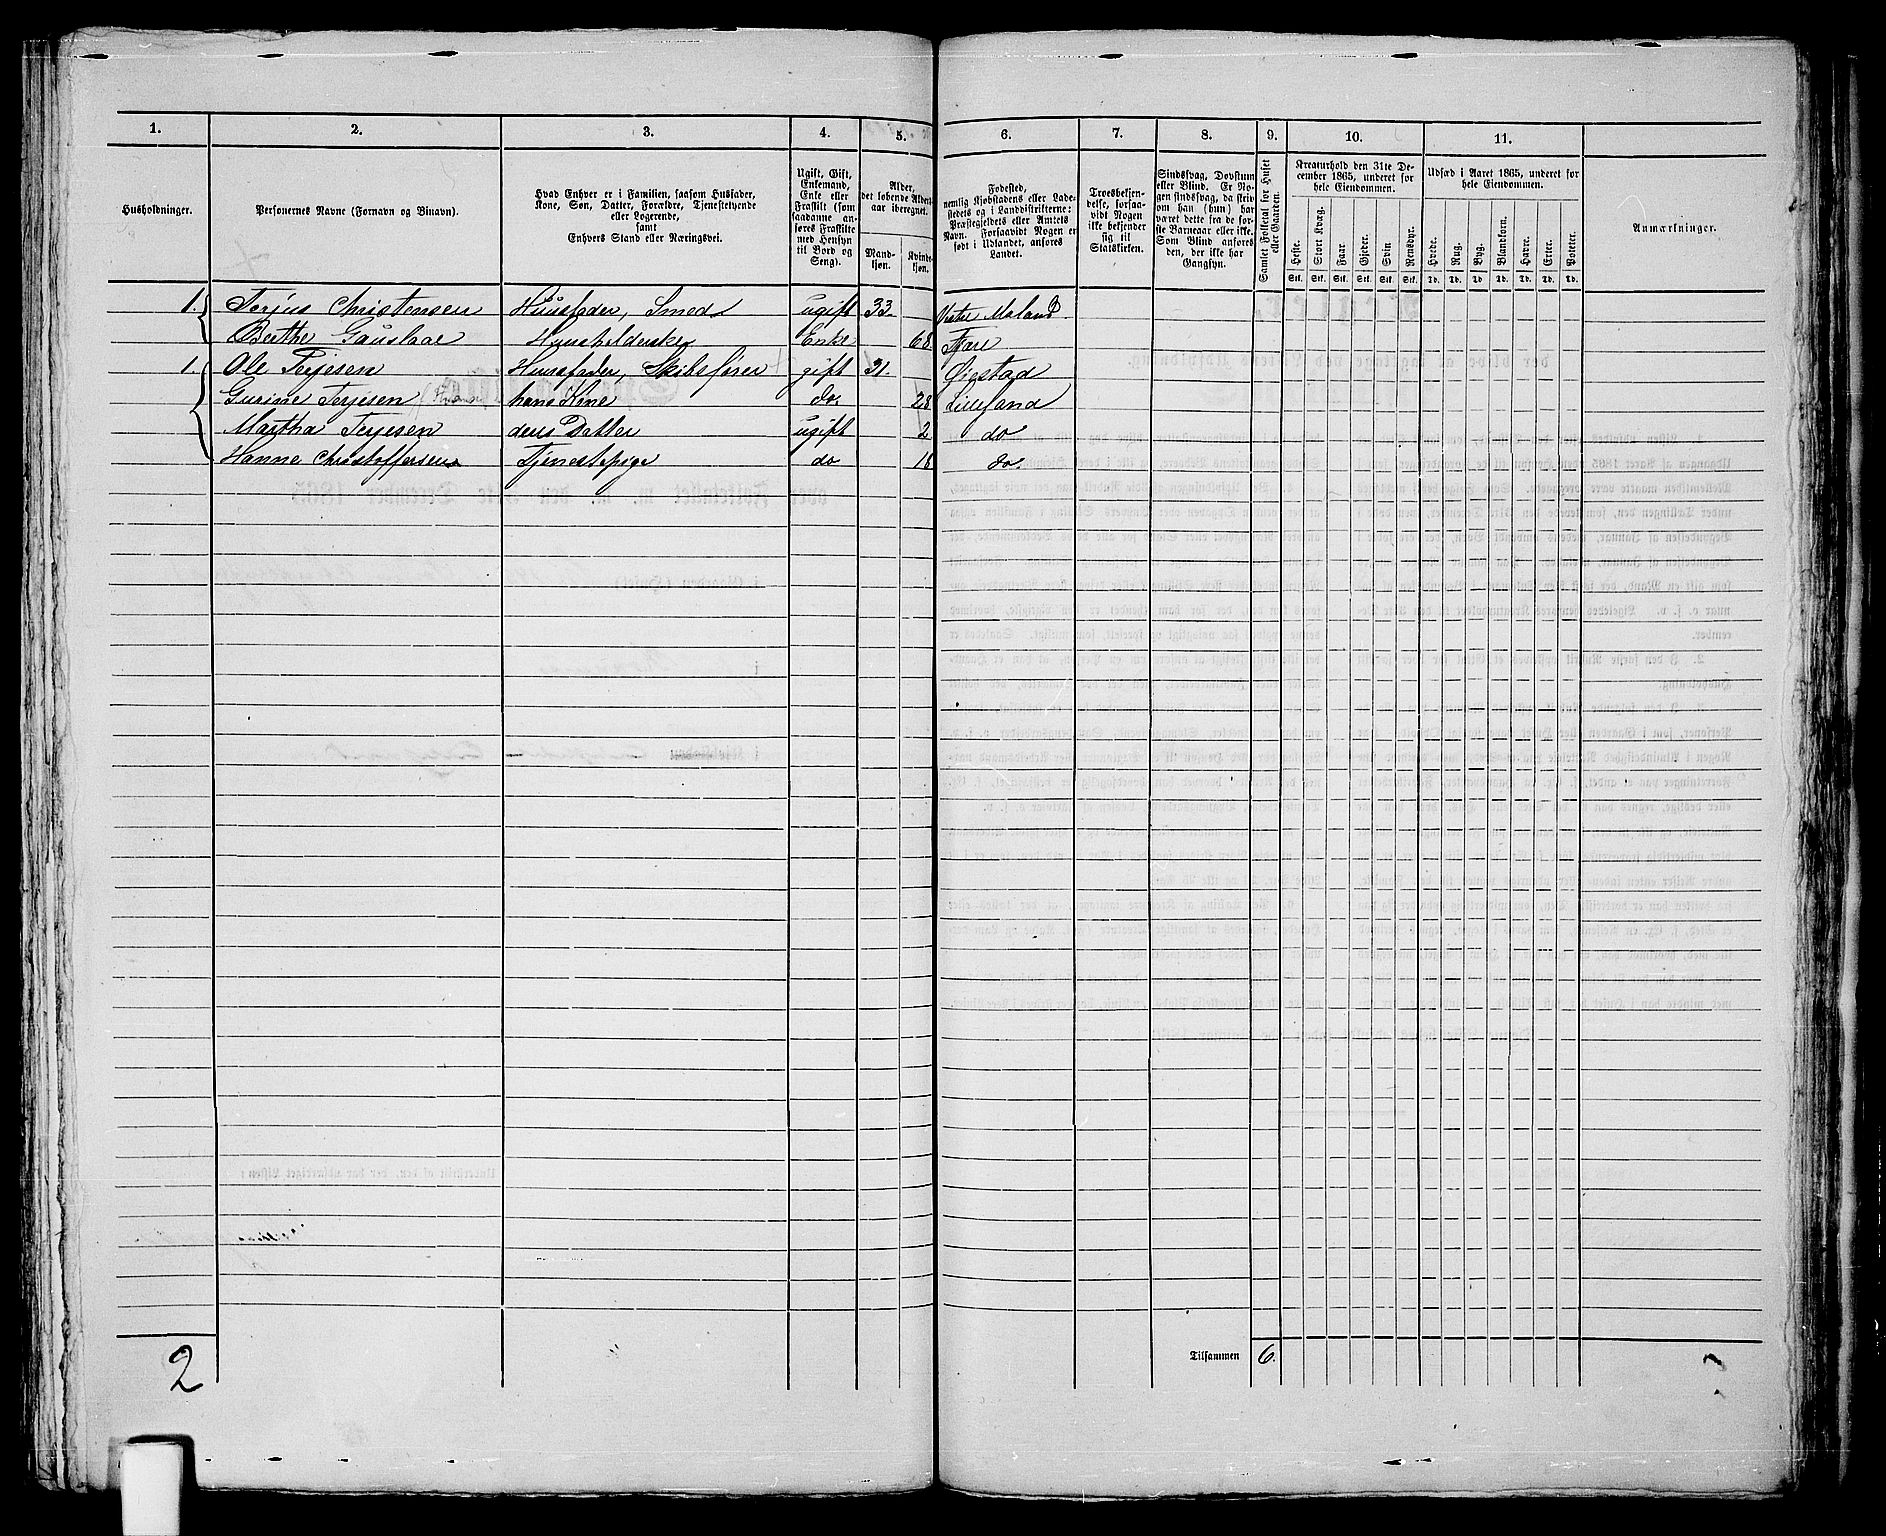 1. 2. 3. 4. 5. 6. 7. 8. 9. 10. 11.
Husholdninger.
Personernes Navne (Fornavn og Binavn).
Hvad Enhver er i Familien, saasom Husfader,
Kone, Søn, Datter, Forældre, Tjenestetyende
eller Logerende,
samt
Enhvers Stand eller Næringsvei.
Ugift, Gift,
Enkemand,
Enke eller
Fraskilt (som
saadanne an-
føres Fraskilte
med Hensyn
til Bord og
Seng).
Alder,
det løbende Alders-
aar iberegnet.
Mand-
kjøn.
Kvinde-
kjøn.
Fødested,
nemlig Kjøbstadens eller Lade-
stedets og i Landdistrikterne:
Præstegjeldets eller Amtets
Navn. Forsaavidt Nogen er
født i Udlandet, anføres
Landet.
Troesbekjen-
delse, forsaa-
vidt Nogen
ikke bekjender
sig til
Statskirken.
Sindssvag, Døvstum
eller Blind. Er No-
gen sindssvag, da skriv
om han (hun) har
været dette fra de før-
ste Barneaar eller ikke.
Som Blind anføres
den, der ikke har
Gangsyn.
Samlet Folketal for Huset
eller Gaarden.
Kreaturhold den 31te De-
cember 1865, underet for
hele Eiendommen.
Heste. Stort Kvæg. Faar. Gjeder. Svin Rensdyr.
Stk. Stk. Stk. Stk. Stk. Stk.
Udsæd i Aaret 1865, underet for
hele Eiendommen.
Hvede. Rug. Byg. Blandkorn. Havre. Erter. Poteter.
Td. Td. Td. Td. Td. Td. Td.
Anmærkninger.
1. Terjus Christensen Huusfader, Smed ugift 33. Vestre Moland.
Berthe Gauslaae Huusholderske Enke 68 Fjære
1. Ole Terjesen Huusfader, Skibsfører gift 31. Øiestad
Gurine Terjesen hans Kone do. 28 Lillesand
Martha Terjesen deres Datter ugift 2 do
Hanne Christoffersen Tjenestepige do 18 do.
2 Tilsammen 6.